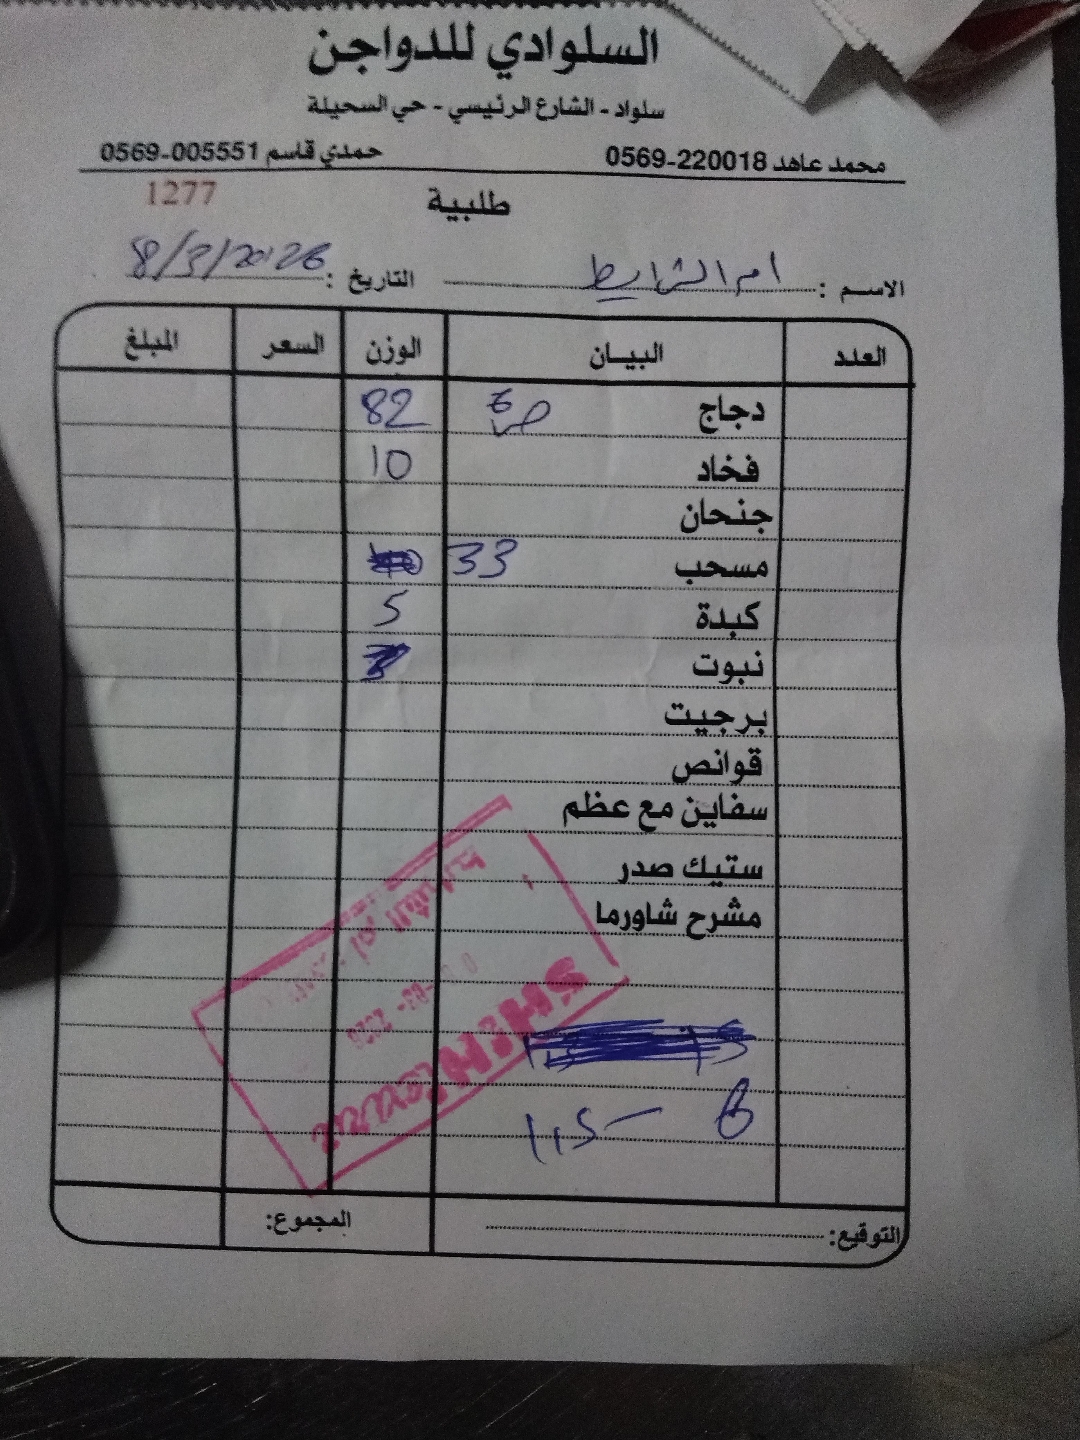 السلوادي للدواجن
سلواد - الشارع الرئيسي - حي السحيلة
محمد عاهد 220018-0569 حمدي قاسم 005551-0569
طلبية 1277
الاسم : ام الشرايط التاريخ : 8/3/2026
العدد البيـان الوزن السعر المبلغ
دجاج 82
فخاد 10
جنحان
مسحب 33
كبدة 5
نبوت
برجيت
قوانص
سفاين مع عظم
ستيك صدر
مشرح شاورما
ام الشرايط
2026
SHINI
التوقيع: المجموع: